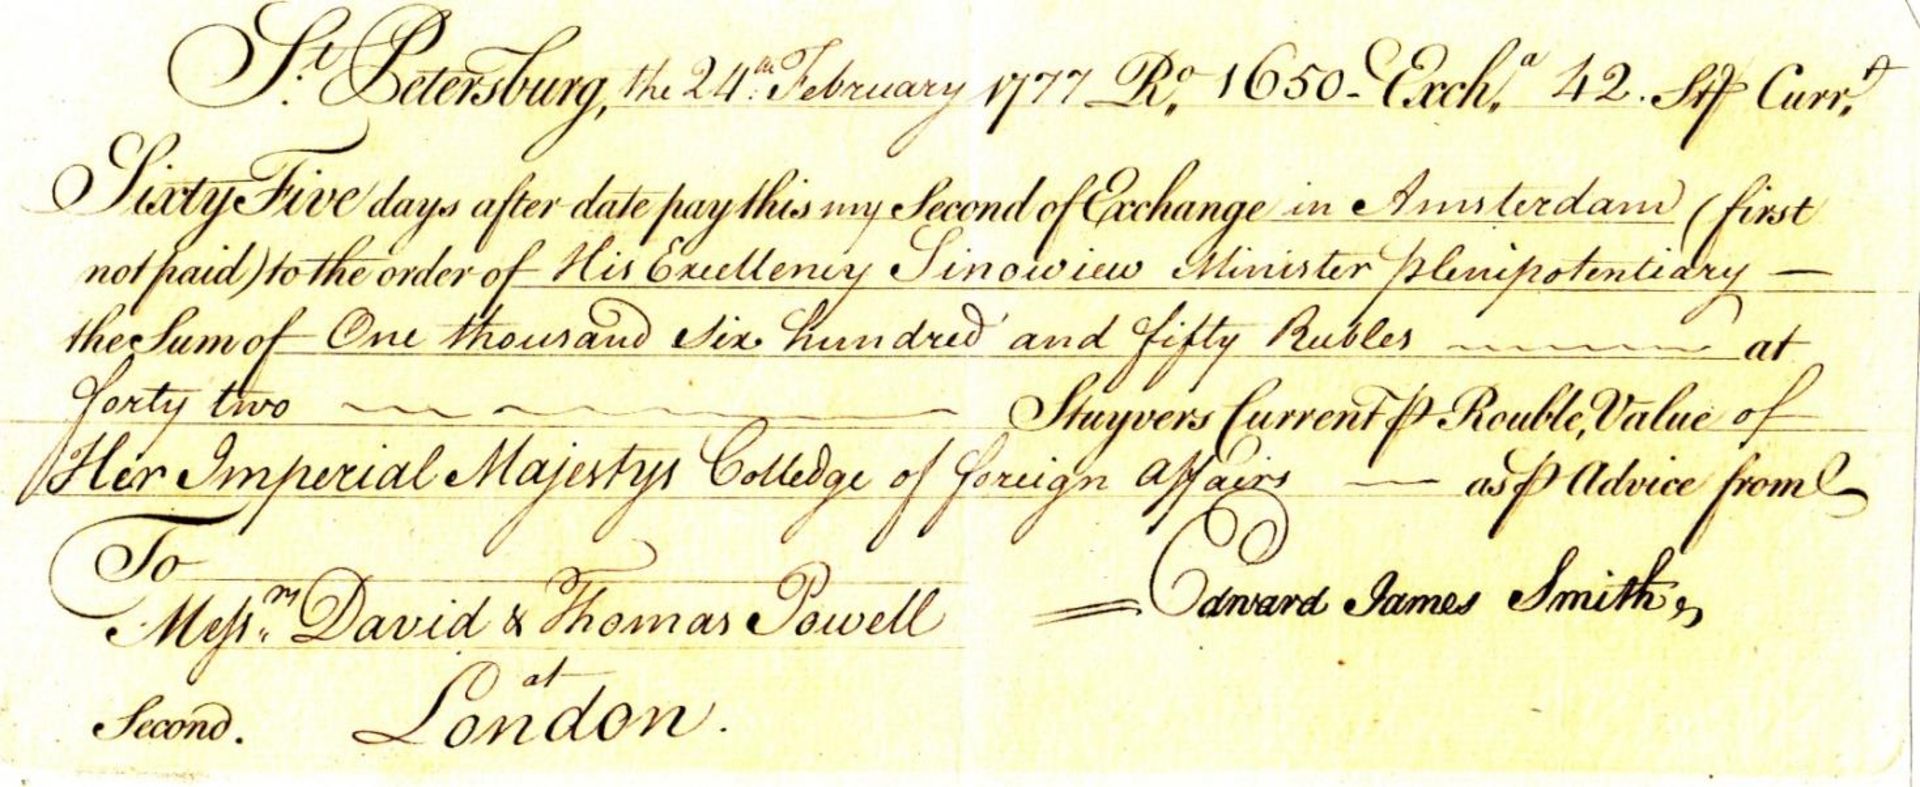 St. Petersburg, the 24th February 1777 Ro. 1650 - Excha. 42. St ꝑ Currt.
Sixty Five days after date pay this my Second of Exchange in Amsterdam (first
not paid) to the order of His Excellency Sinowiew Minister plenipotentiary —
the Sum of One thousand six hundred and fifty Rubles ——— at
forty two ——— Stuyvers Current ꝑ Rouble, Value of
Her Imperial Majestys Colledge of foreign affairs — as ꝑ Advice from
To
Messrs. David & Thomas Powell = Edward James Smith
at
Second. London.